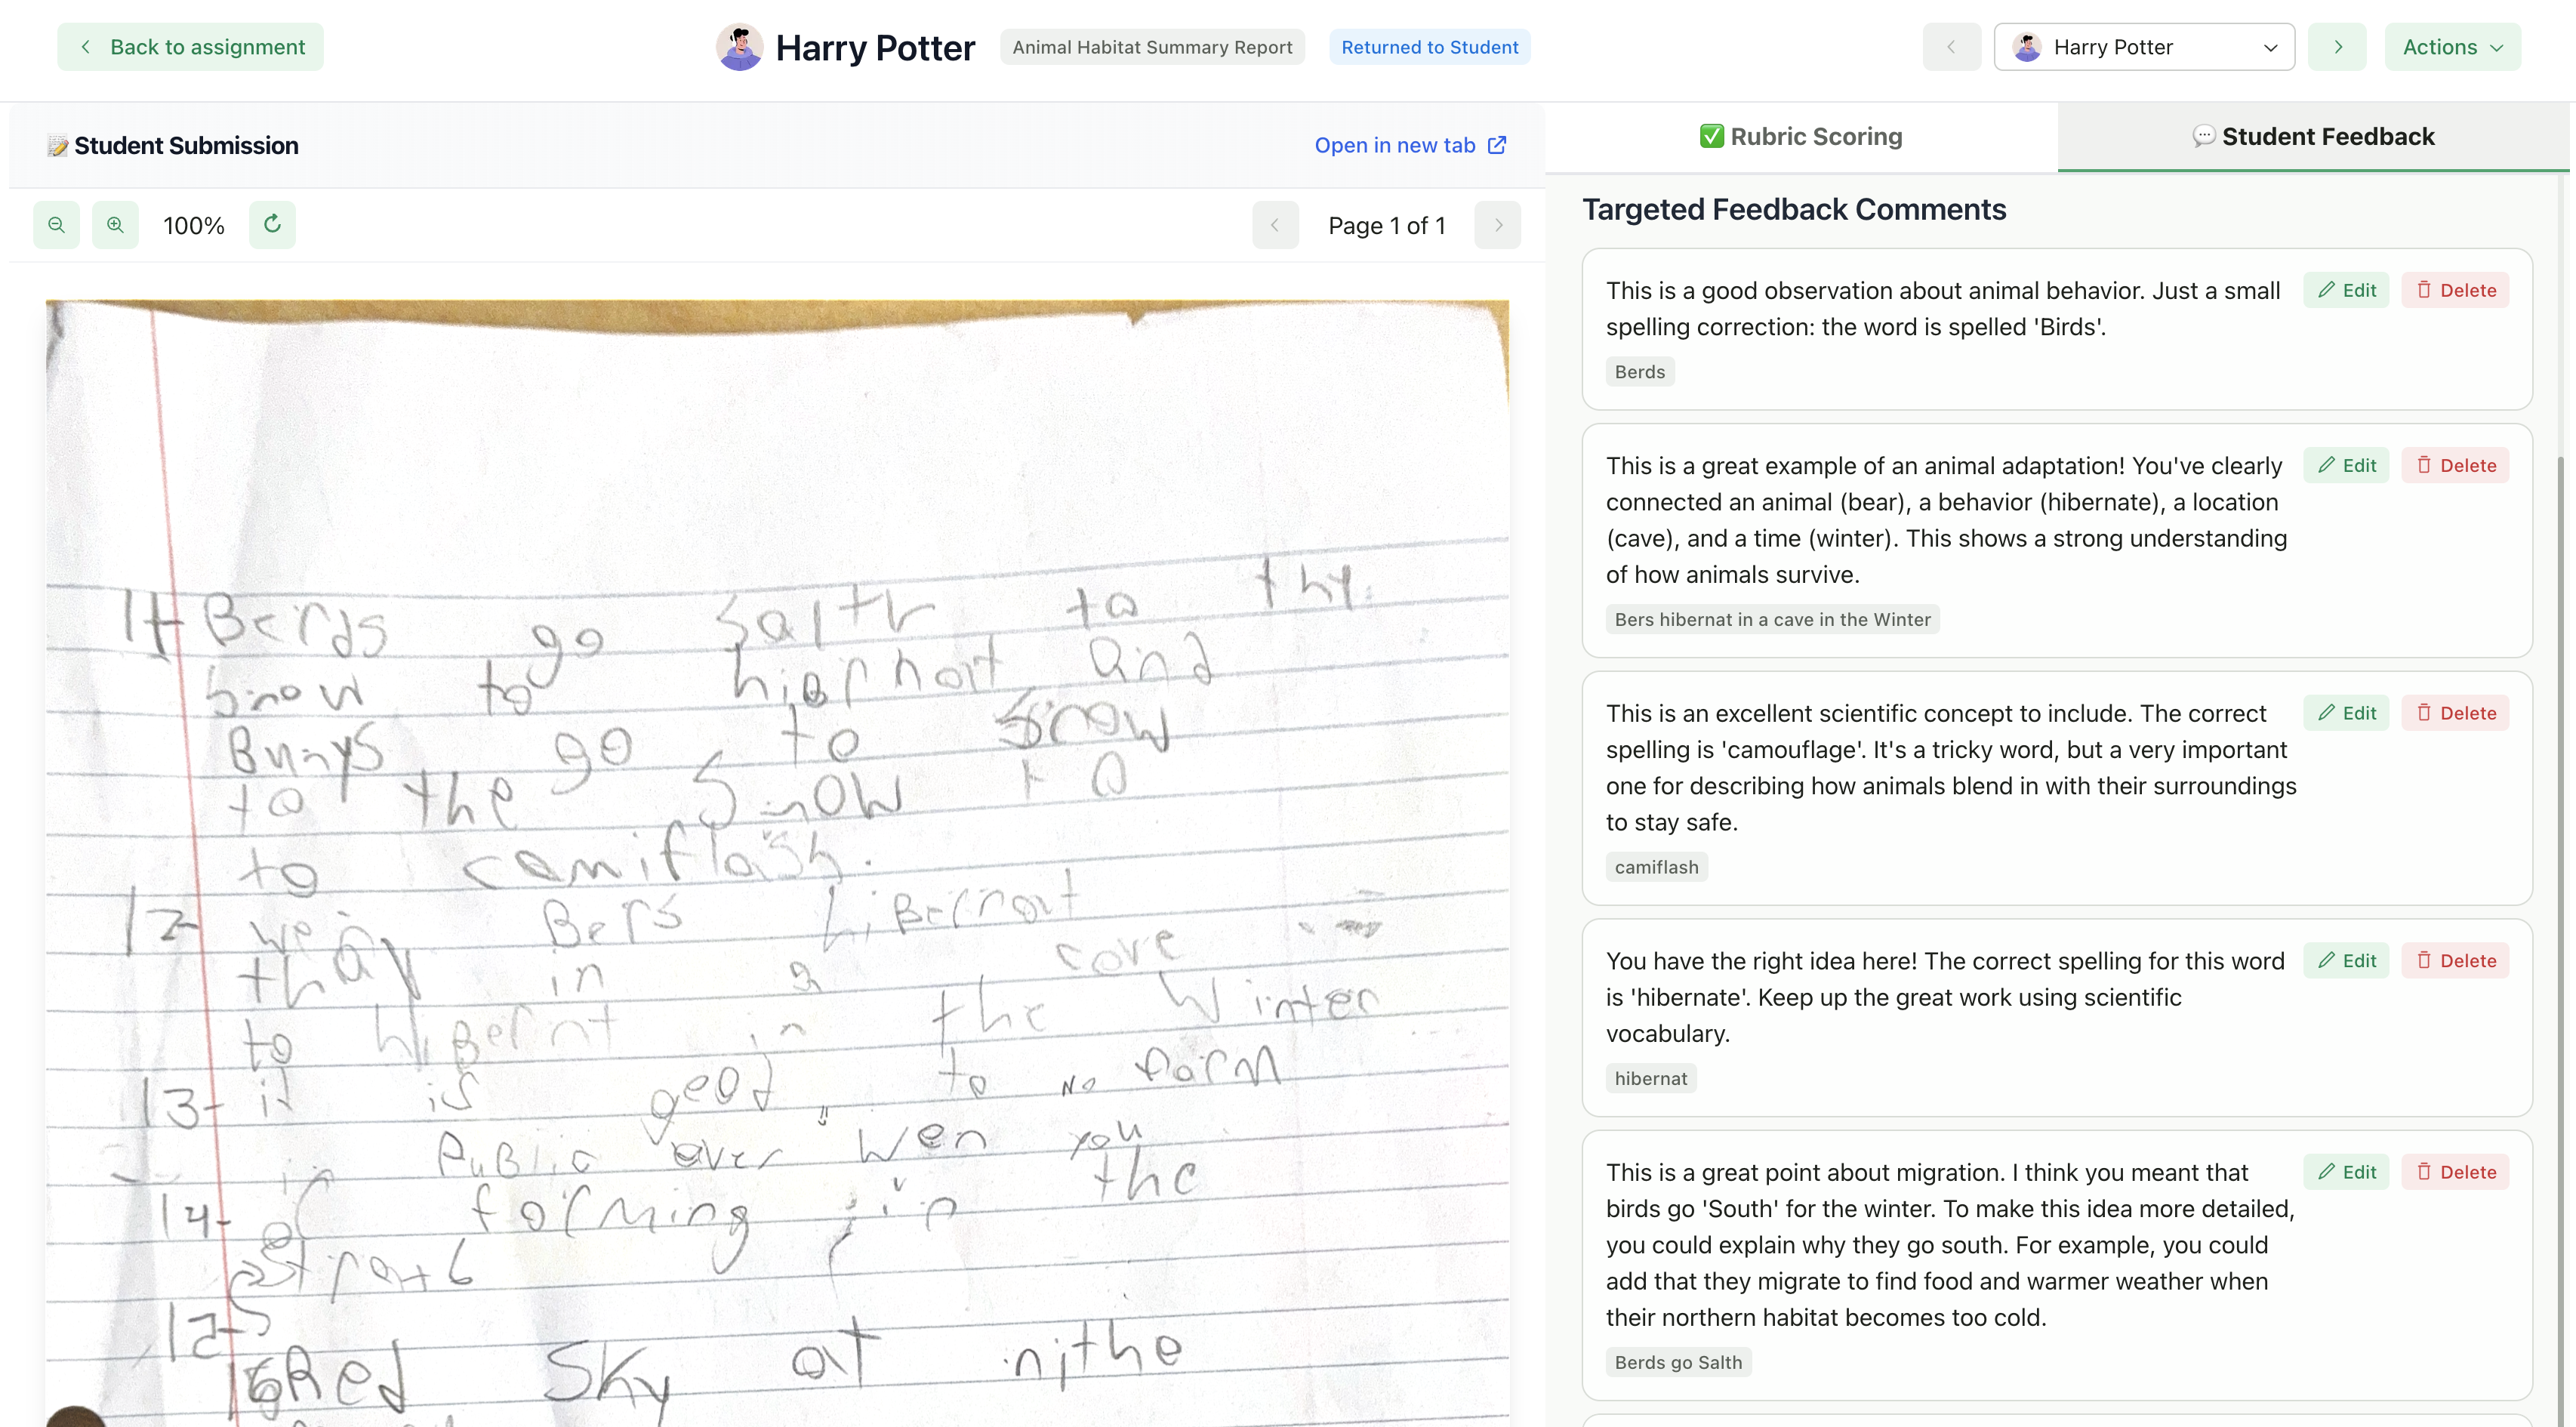 Back to assignment
Harry Potter
Animal Habitat Summary Report
Returned to Student
Harry Potter
Actions
Student Submission
Open in new tab
100%
Page 1 of 1
11- Berds go Salth to thy
Snow to hiBrnat and
Bunnys go to Snow
to the Snow to
to camiflash.
12- we Bers hiBernat
thay in a cave
to hiBernt in the Winter
13- it is geod to No farm
in PuBlic over Wen you
14- forming in the
Red Sky at nithe
Rubric Scoring
Student Feedback
Targeted Feedback Comments
This is a good observation about animal behavior. Just a small
spelling correction: the word is spelled 'Birds'.
Edit
Delete
Berds
This is a great example of an animal adaptation! You've clearly
connected an animal (bear), a behavior (hibernate), a location
(cave), and a time (winter). This shows a strong understanding
of how animals survive.
Edit
Delete
Bers hibernat in a cave in the Winter
This is an excellent scientific concept to include. The correct
spelling is 'camouflage'. It's a tricky word, but a very important
one for describing how animals blend in with their surroundings
to stay safe.
Edit
Delete
camiflash
You have the right idea here! The correct spelling for this word
is 'hibernate'. Keep up the great work using scientific
vocabulary.
Edit
Delete
hibernat
This is a great point about migration. I think you meant that
birds go 'South' for the winter. To make this idea more detailed,
you could explain why they go south. For example, you could
add that they migrate to find food and warmer weather when
their northern habitat becomes too cold.
Edit
Delete
Berds go Salth